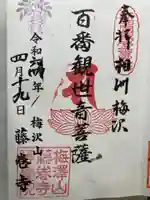 奉拝 相州 梅沢
百番観世音菩薩
令和四年
四月十九日
梅沢山
藤巻寺
梅澤山
藤巻寺